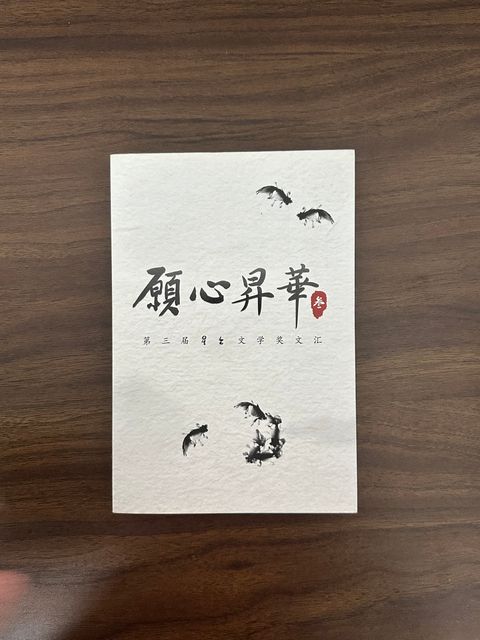 願心昇華
叁
第三届星云文学奖文汇